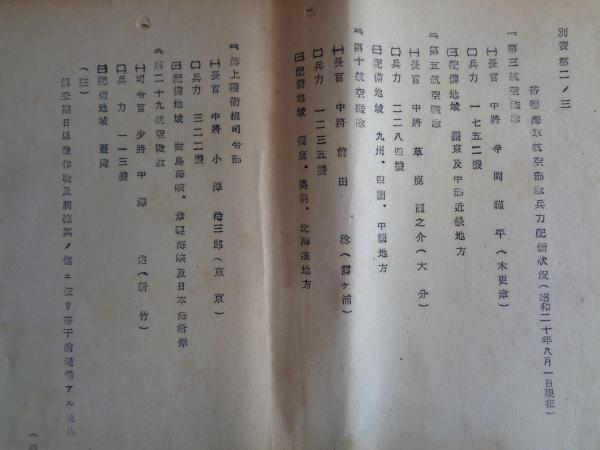 別表第二ノ三
各種海軍航空部隊兵力配備状況(昭和二十年八月一日現在)
一、第三航空艦隊
(一)長官 中將 寺岡謹平(木更津)
(二)兵力 一七五二機
(三)配備地域 關東及中部近畿地方
二、第五航空艦隊
(一)長官 中將 草鹿龍之介(大分)
(二)兵力 二二八四機
(三)配備地域 九州、四國、中國地方
三、第十航空艦隊
(一)長官 中將 前田 稔(霞ヶ浦)
(二)兵力 一二三五機
(三)配備地域 關東、奥羽、北海道地方
四、海上護衛總司令部
(一)長官 中將 小澤治三郎(東京)
(二)兵力 三二二機
(三)配備地域 對馬海峽、津輕海峽及日本海沿岸
五、第二十九航空戰隊
(一)司令官 少將 中澤 佑(新竹)
(二)兵力 一一三機
(三)配備地域 臺灣
(註)
調査期日以後作戰及訓練其ノ他ニ依リ若干消耗機アル見込